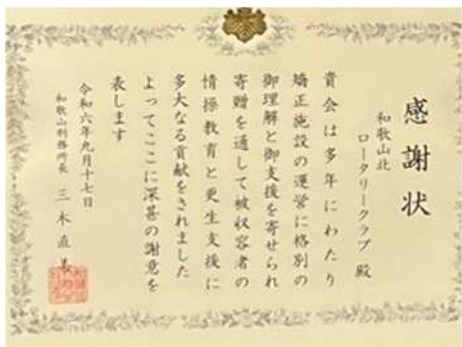 感謝状
和歌山北
ロータリークラブ 殿
貴会は多年にわたり
矯正施設の運営に格別の
御理解と御支援を寄せられ
寄贈を通して被収容者の
情操教育と更生支援に
多大なる貢献をされました
よってここに深甚の謝意を
表します
令和六年九月十七日
和歌山刑務所長 三木直